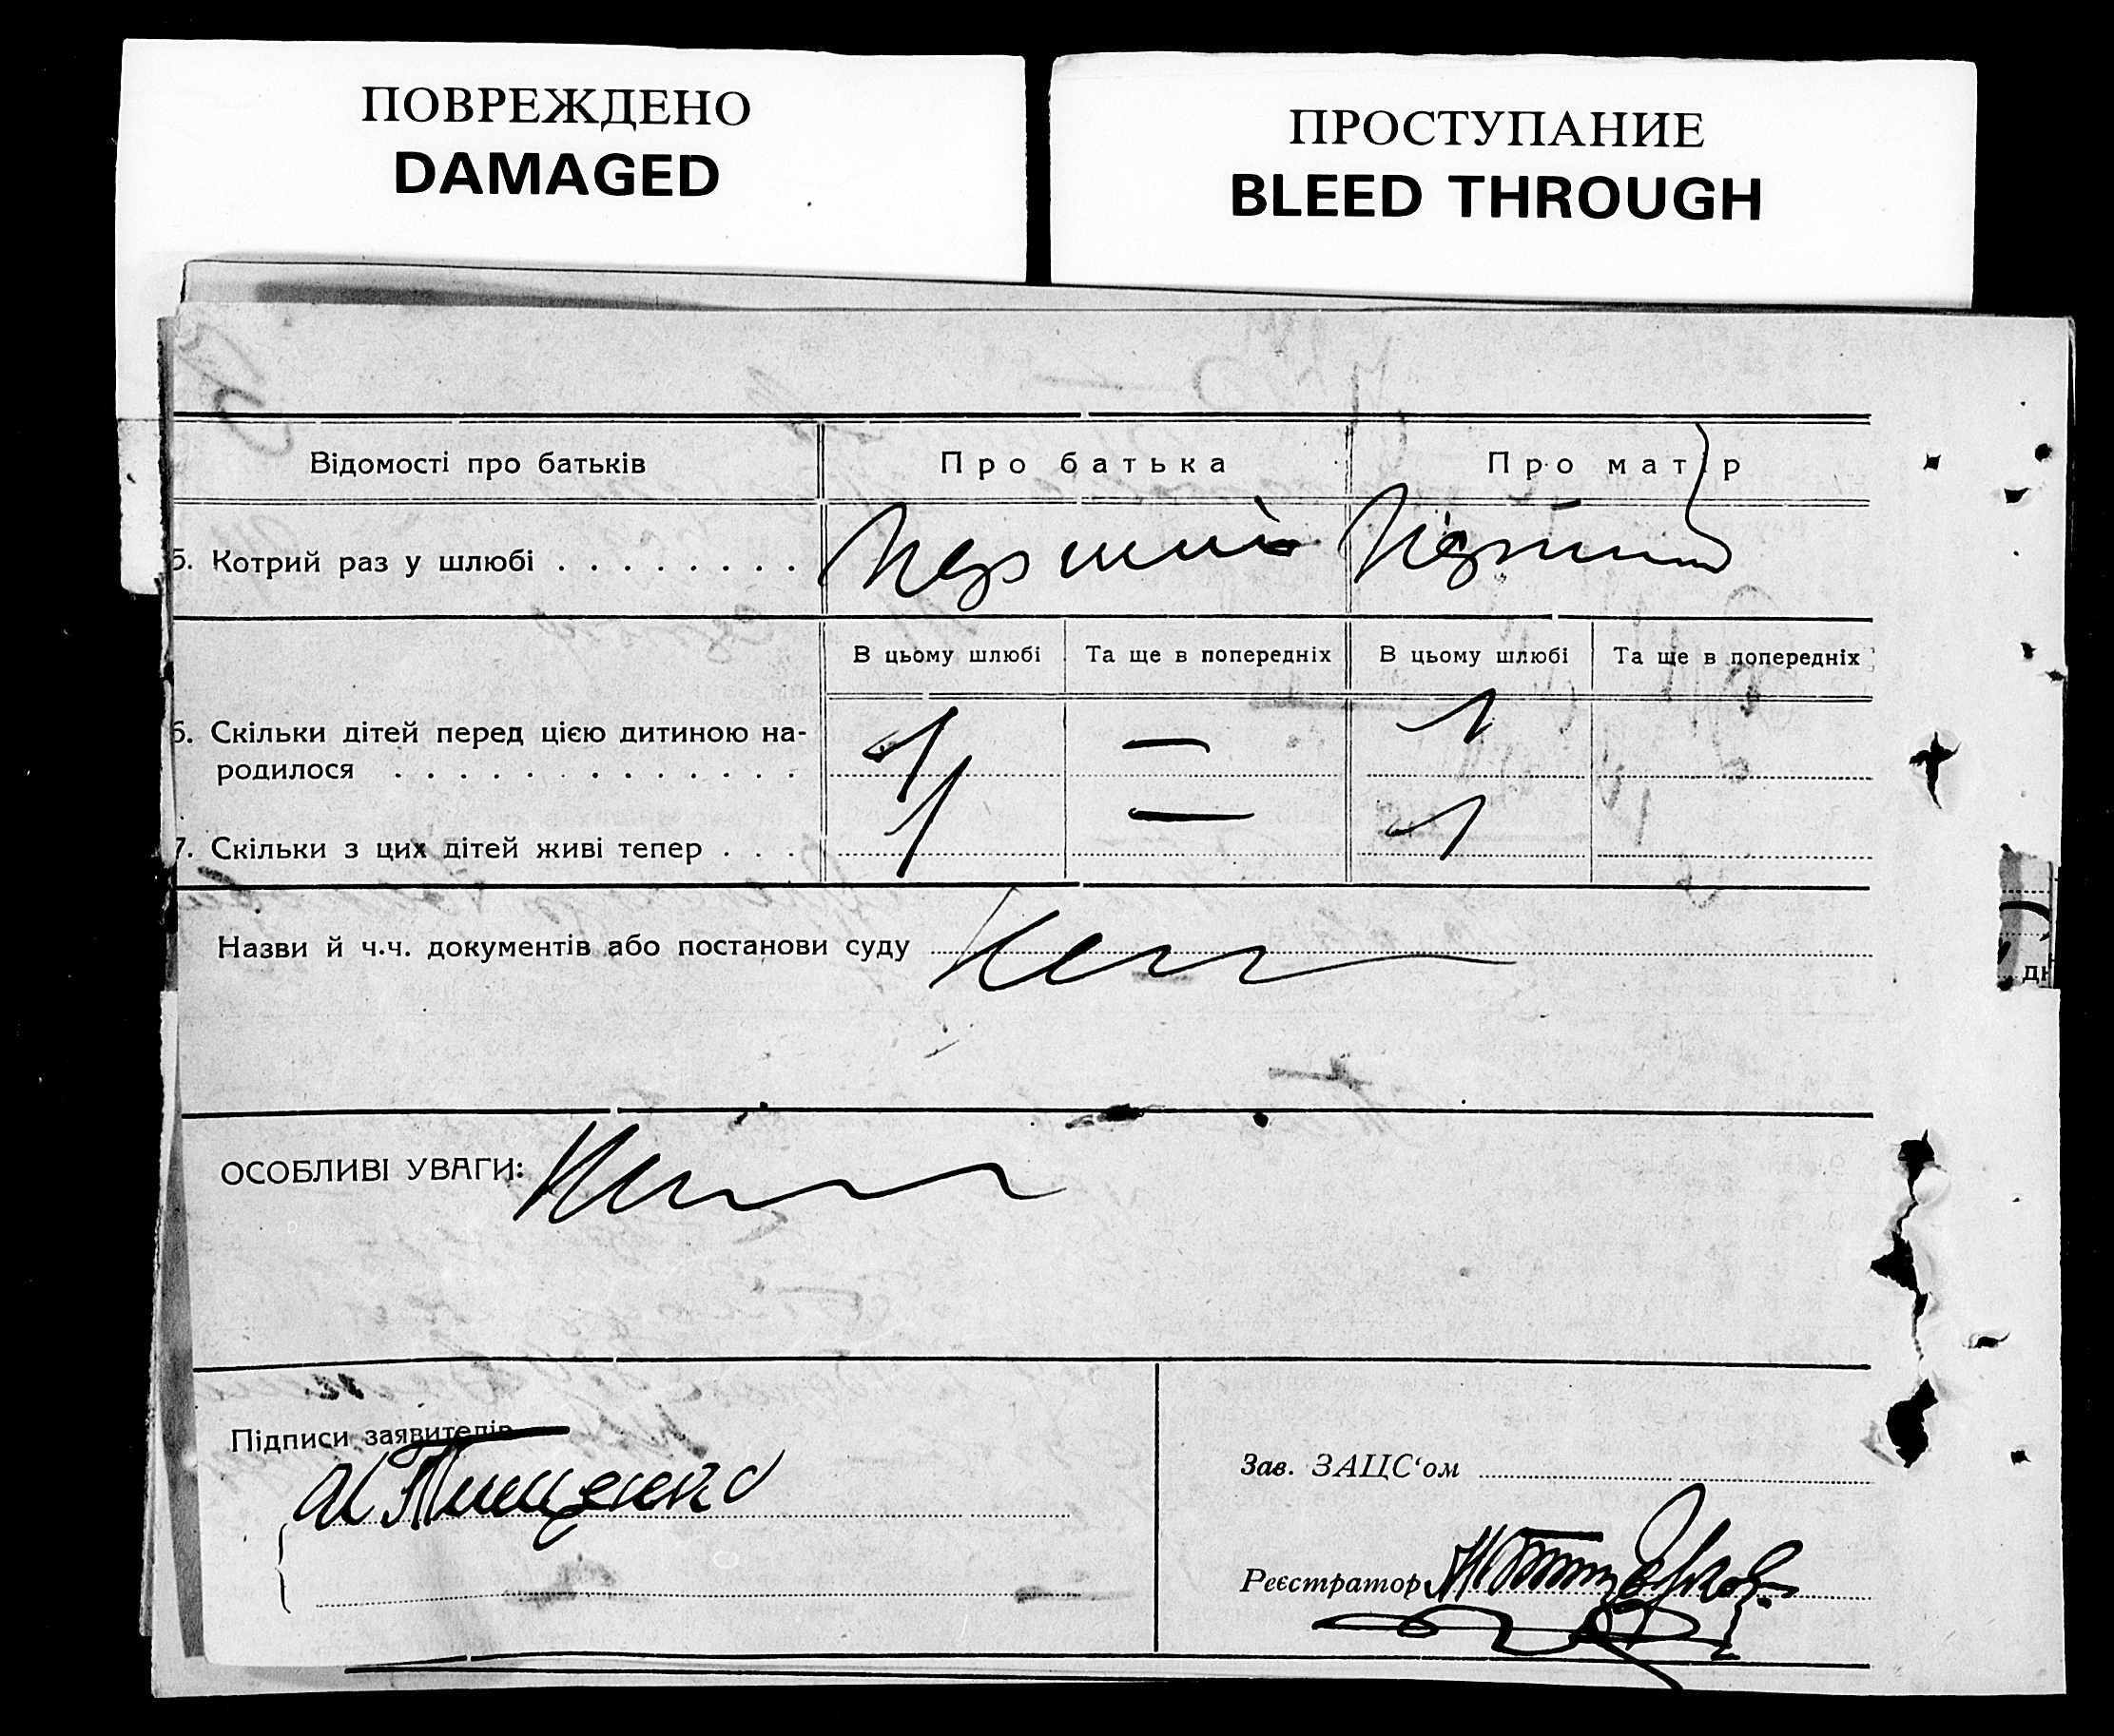 ПОВРЕЖДЕНО
DAMAGED
ПРОСТУПАНИЕ
BLEED THROUGH
Відомості про батьків Про батька Про матір
5. Котрий раз у шлюбі . . . . . . . . Перший Перший
В цьому шлюбі Та ще в попередніх В цьому шлюбі Та ще в попередніх
6. Скільки дітей перед цією дитиною на-
родилося . . . . . . . . . . . . . 1 — 1
7. Скільки з цих дітей живі тепер . . . 1 — 1
Назви й ч.ч. документів або постанови суду
ОСОБЛИВІ УВАГИ:
Підписи заявителів
Тищенко
Зав. ЗАЦС‘ом
Реєстратор